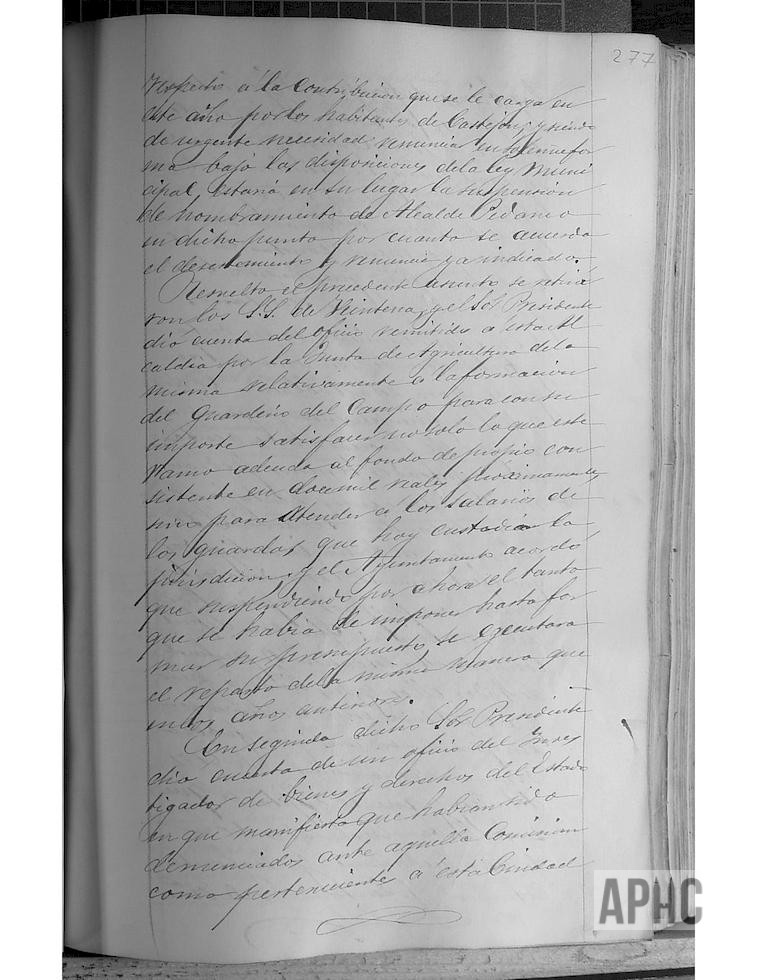 277
respecto á la Contribucion que se le carga en
este año por los habitantes de Castejon; y siendo
de urgente necesidad renuncia en solemne for
ma bajo las disposiciones de la ley Muni
cipal, estaria en su lugar la suspension
de nombramiento de Alcalde Pedaneo
en dicho punto por cuanto se acuerda
el desestimiento y renuncia ya indicado.
Resuelto el precedente asunto se retira
ron los S.S. de Veintena, y el Sor Presidente
dio cuenta del oficio remitido a esta Al
caldia por la Junta de Agricultura de la
misma relativamente a la formacion
del Guarderio del Campo para con su
importe satisfacer no solo lo que este
ramo adeuda al fondo de propio con
sistente en doce mil reales proximamente
sino para atender á los salarios de
los guardas que hoy custodian la
jurisdicion, y el Ayuntamiento acordó
que suspendiendo por ahora el tanto
que se habia de imponer hasta for
mar su presupuesto, se ejecutara
el reparto de la misma manera que
en los años anteriores.
En seguida dicho Sor Presidente
dio cuenta de un oficio del Inves
tigador de bienes y derechos del Estado
en que manifiesta que habian sido
denunciados ante aquella Comision
como perteneciente á esta Ciudad
APHC